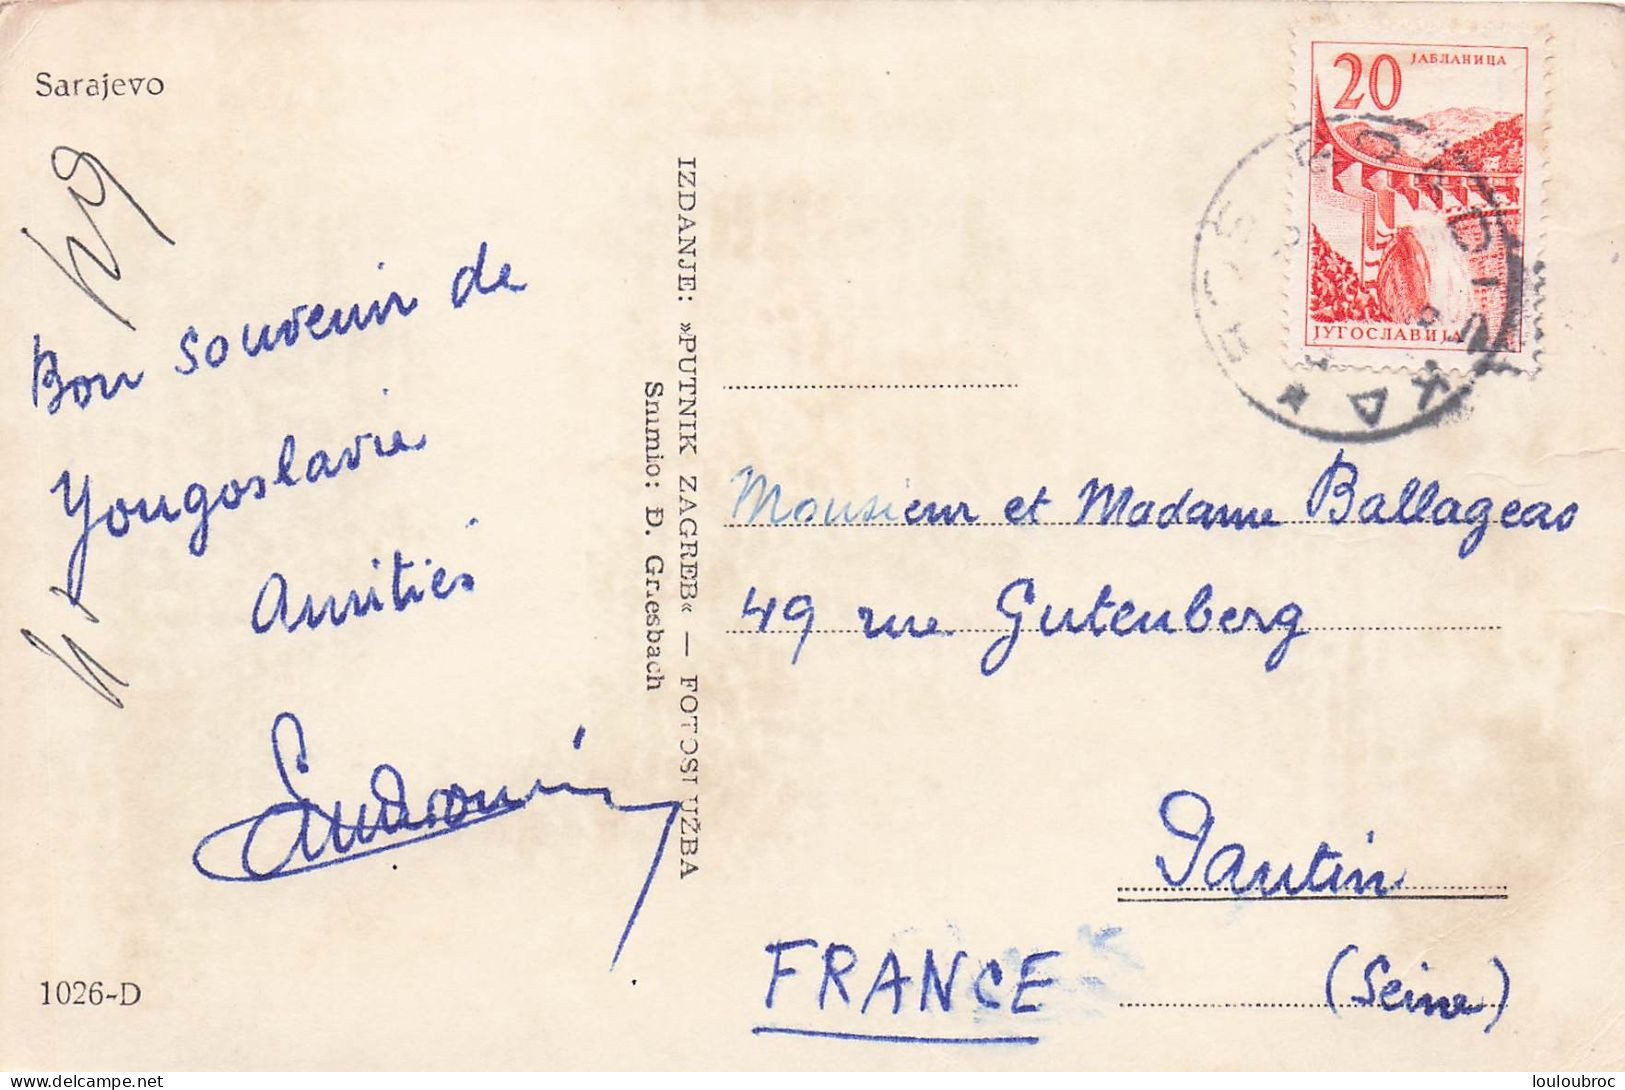 Sarajevo
Bon souvenir de
Yougoslavie
Amitiés
1026-D
IZDANJE: »PUTNIK ZAGREB« — FOTOSLUŽBA
Snimio: Đ. Griesbach
20 ЈАБЛАНИЦА
ЈУГОСЛАВИЈА
Monsieur et Madame Ballageas
49 rue Gutenberg
Pantin
(Seine)
FRANCE
delcampe.net
louloubroc